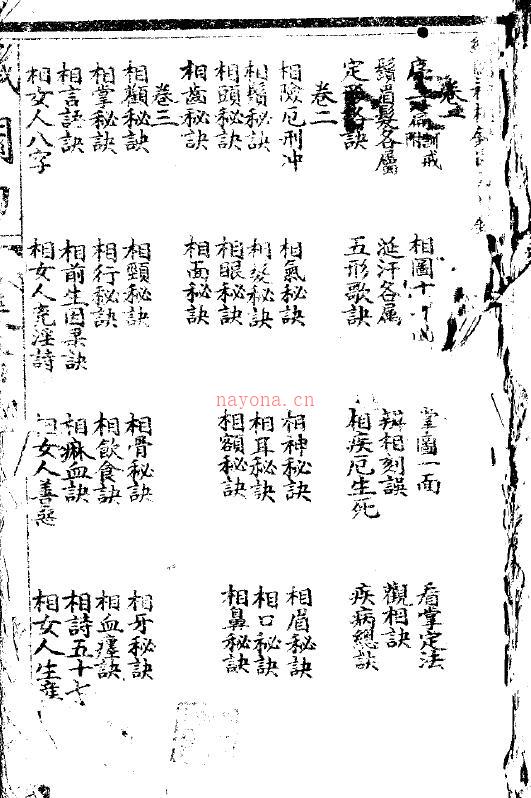 卷一
序 附 戒 相圖十 掌圖一面 看掌定法
鬚眉髮各屬 涎汗各属 辨相刻誤 觀相訣
定 訣 五形歌訣 相疾厄生死 疾病總訣
卷二
相險厄刑冲 相氣秘訣 相神秘訣 相眉秘訣
相鬚秘訣 相髮秘訣 相耳秘訣 相口秘訣
相頭秘訣 相眼秘訣 相額秘訣 相鼻秘訣
相齒秘訣 相面秘訣
卷三
相顴秘訣 相頸秘訣 相骨秘訣 相牙秘訣
相掌秘訣 相行秘訣 相飲食訣 相血 訣
相言語訣 相前生因果訣 相痳血訣 相詩五十七
相女人八字 相女人 淫詩 相女人善惡 相女人生產
nayona.cn